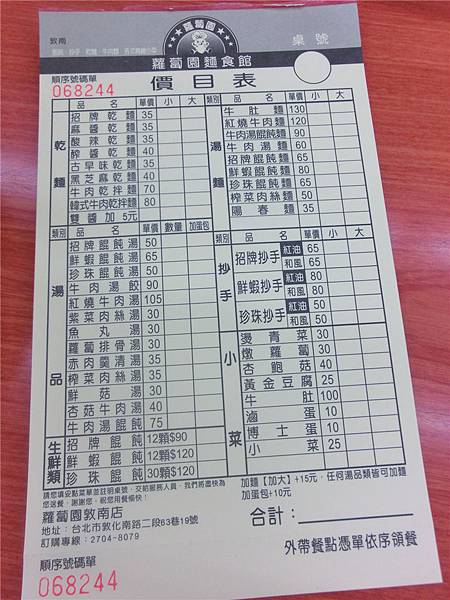 敦南
蘿蔔園
桌號
蘿蔔園麵食館
順序號碼單
068244
價目表
類別 品名 單價 小 大
乾麵
招牌乾麵 35
麻醬乾麵 35
酸辣乾麵 35
醡醬乾麵 40
古早味乾麵 35
黑芝麻乾麵 40
牛肉乾拌麵 70
韓式牛肉乾拌麵 80
雙醬加5元
類別 品名 單價 小 大
湯麵
牛肚麵 130
紅燒牛肉麵 120
牛肉湯餛飩麵 90
牛肉湯麵 60
招牌餛飩麵 65
鮮蝦餛飩麵 80
珍珠餛飩麵 65
榨菜肉絲麵 50
陽春麵 35
類別 品名 單價 數量 加蛋包
湯品
招牌餛飩湯 50
鮮蝦餛飩湯 65
珍珠餛飩湯 50
牛肉湯餃 90
紅燒牛肉湯 105
紫菜肉絲湯 30
魚丸湯 30
蘿蔔排骨湯 30
赤肉羹清湯 35
榨菜肉絲湯 35
鮮菇湯 30
杏菇牛肉湯 40
牛肉湯餛飩 75
生鮮類
招牌餛飩 12顆$90
鮮蝦餛飩 12顆$120
珍珠餛飩 30顆$120
類別 品名 單價 小 大
抄手
招牌抄手 紅油 65
和風 65
鮮蝦抄手 紅油 80
和風 80
珍珠抄手 紅油 50
和風 50
小菜
燙青菜 30
燉蘿蔔 30
杏鮑菇 40
黃金豆腐 25
牛肚 100
滷蛋 10
博士蛋 10
小菜 25
請您填妥點菜單並註明桌號，交給服務人員，我們將盡快為
您送餐，謝謝您，祝您用餐愉快！
加麵【加大】+15元，任何湯品類皆可加麵
加蛋包+10元
蘿蔔園敦南店
地址：台北市敦化南路二段63巷19號
訂購專線：2704-8079
合計：
外帶餐點憑單依序領餐
順序號碼單
068244